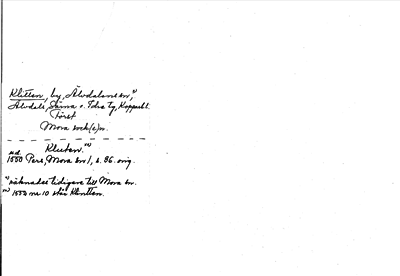 Klitten, by, Älvdalens sn,¹⁾
Älvdals, Särna o. Idre tg, Kopparb l.
Först
Mora sock(e)n.
Kluten.²⁾
1550 Pers, Mora sn 1, s. 86. orig.
¹⁾ räknades tidigare till Mora sn.
²⁾ 1550 nr 10 står Klintten.